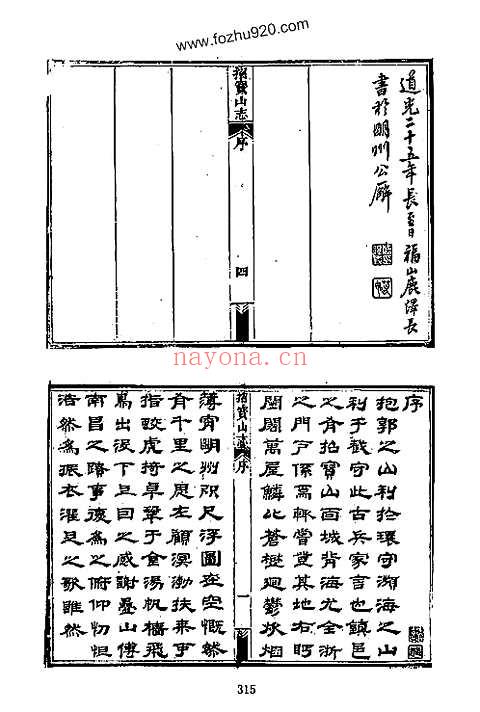 www.fozhu920.com
道光二十五年長至日福山鹿澤長
書於明州公廨
招寶山志
序
四
nayona.cn
序
抱郭之山利於環守瀕海之山
利于截守此古兵家言也鎮邑
之有招寶山面城背海尤全浙
之門戶係焉軫嘗登其地右眄
閭閻萬屋鱗比蒼樾迴鬱炊烟
招寶山志
序
一
薄宵明州咫尺浮圖在空慨然
有千里之 左顧溟渤扶來乎
指蛟虎 阜鞏于金湯帆檣飛
鳥出沒下 回之感謝疊山傅
南昌之 事 為之俯仰 恒
浩然為振衣濯足之歌雖然
315